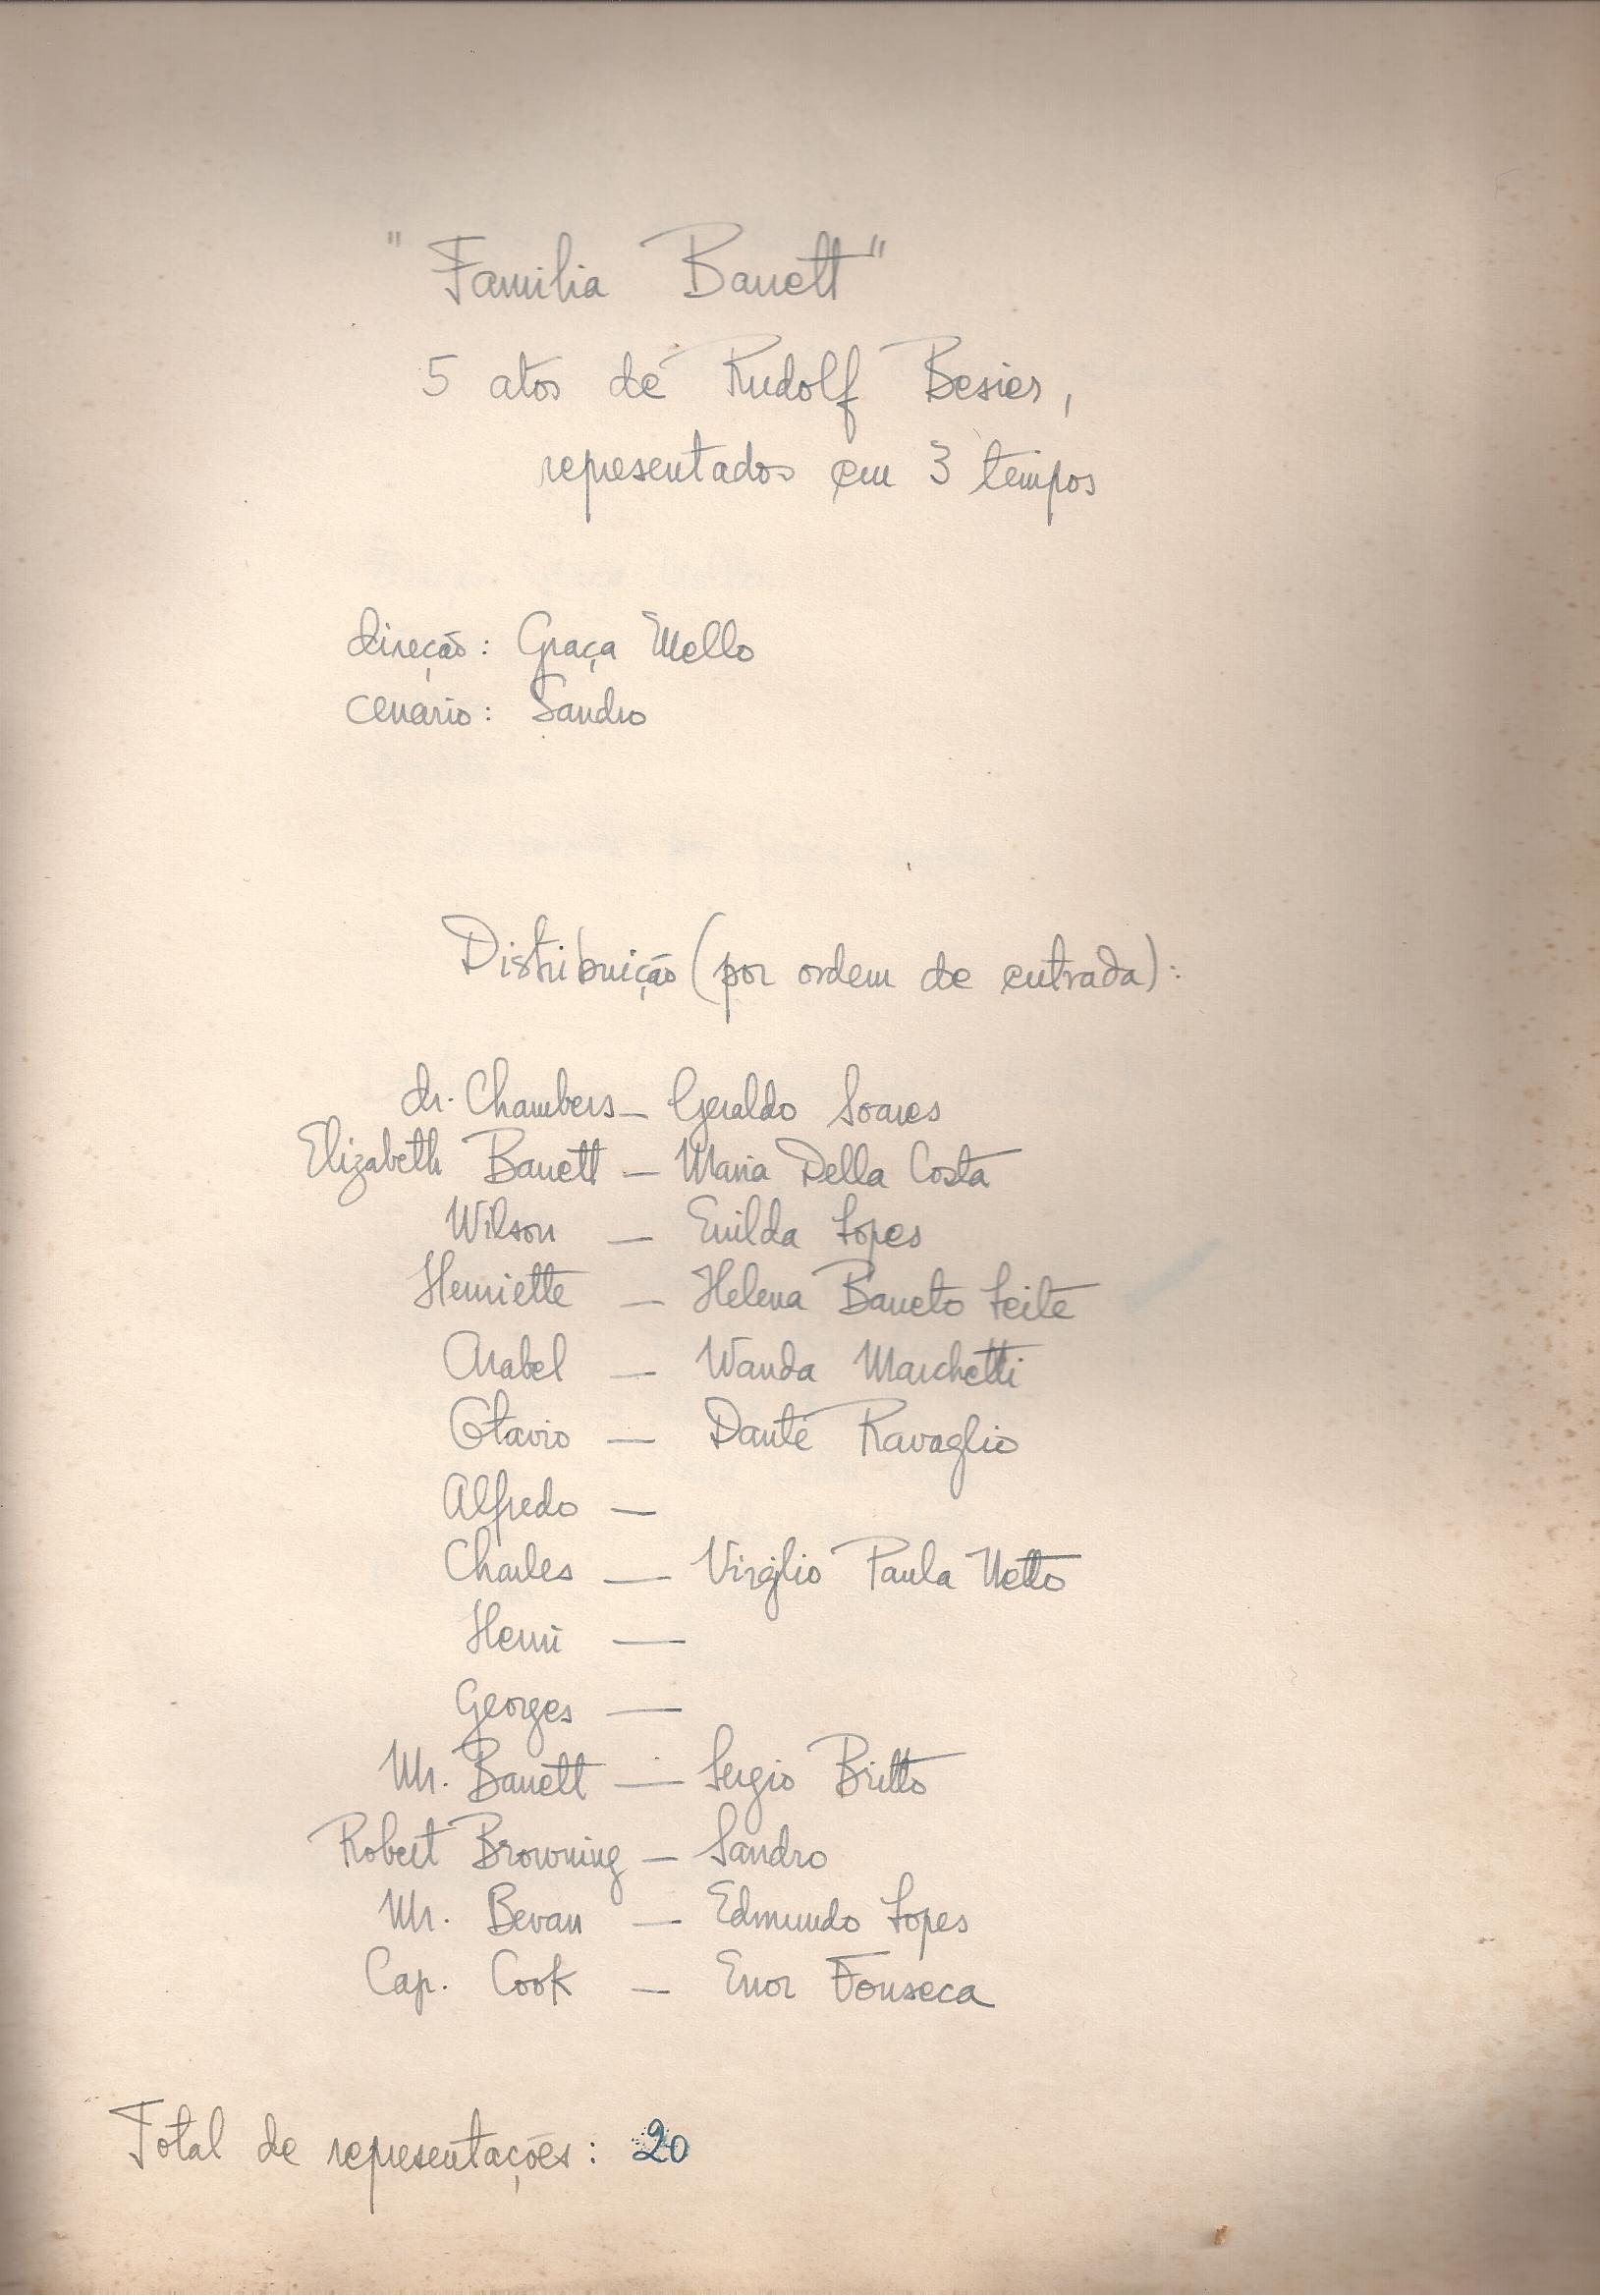 "Familia Barrett"
5 atos de Rudolf Besier,
representados em 3 tempos
direção: Graça Mello
cenário: Sandro
Distribuição (por ordem de entrada):
dr. Chambers — Geraldo Soares
Elizabeth Barrett — Maria Della Costa
Wilson — Enilda Lopes
Henriette — Helena Barreto Leite
Arabel — Wanda Marchetti
Otavio — Dante Ravaglio
Alfredo —
Charles — Virgilio Paula Netto
Henri —
Georges —
Mr. Barrett — Sergio Britto
Robert Browning — Sandro
Mr. Bevan — Edmundo Lopes
Cap. Cook — Enor Fonseca
Total de representações: 20